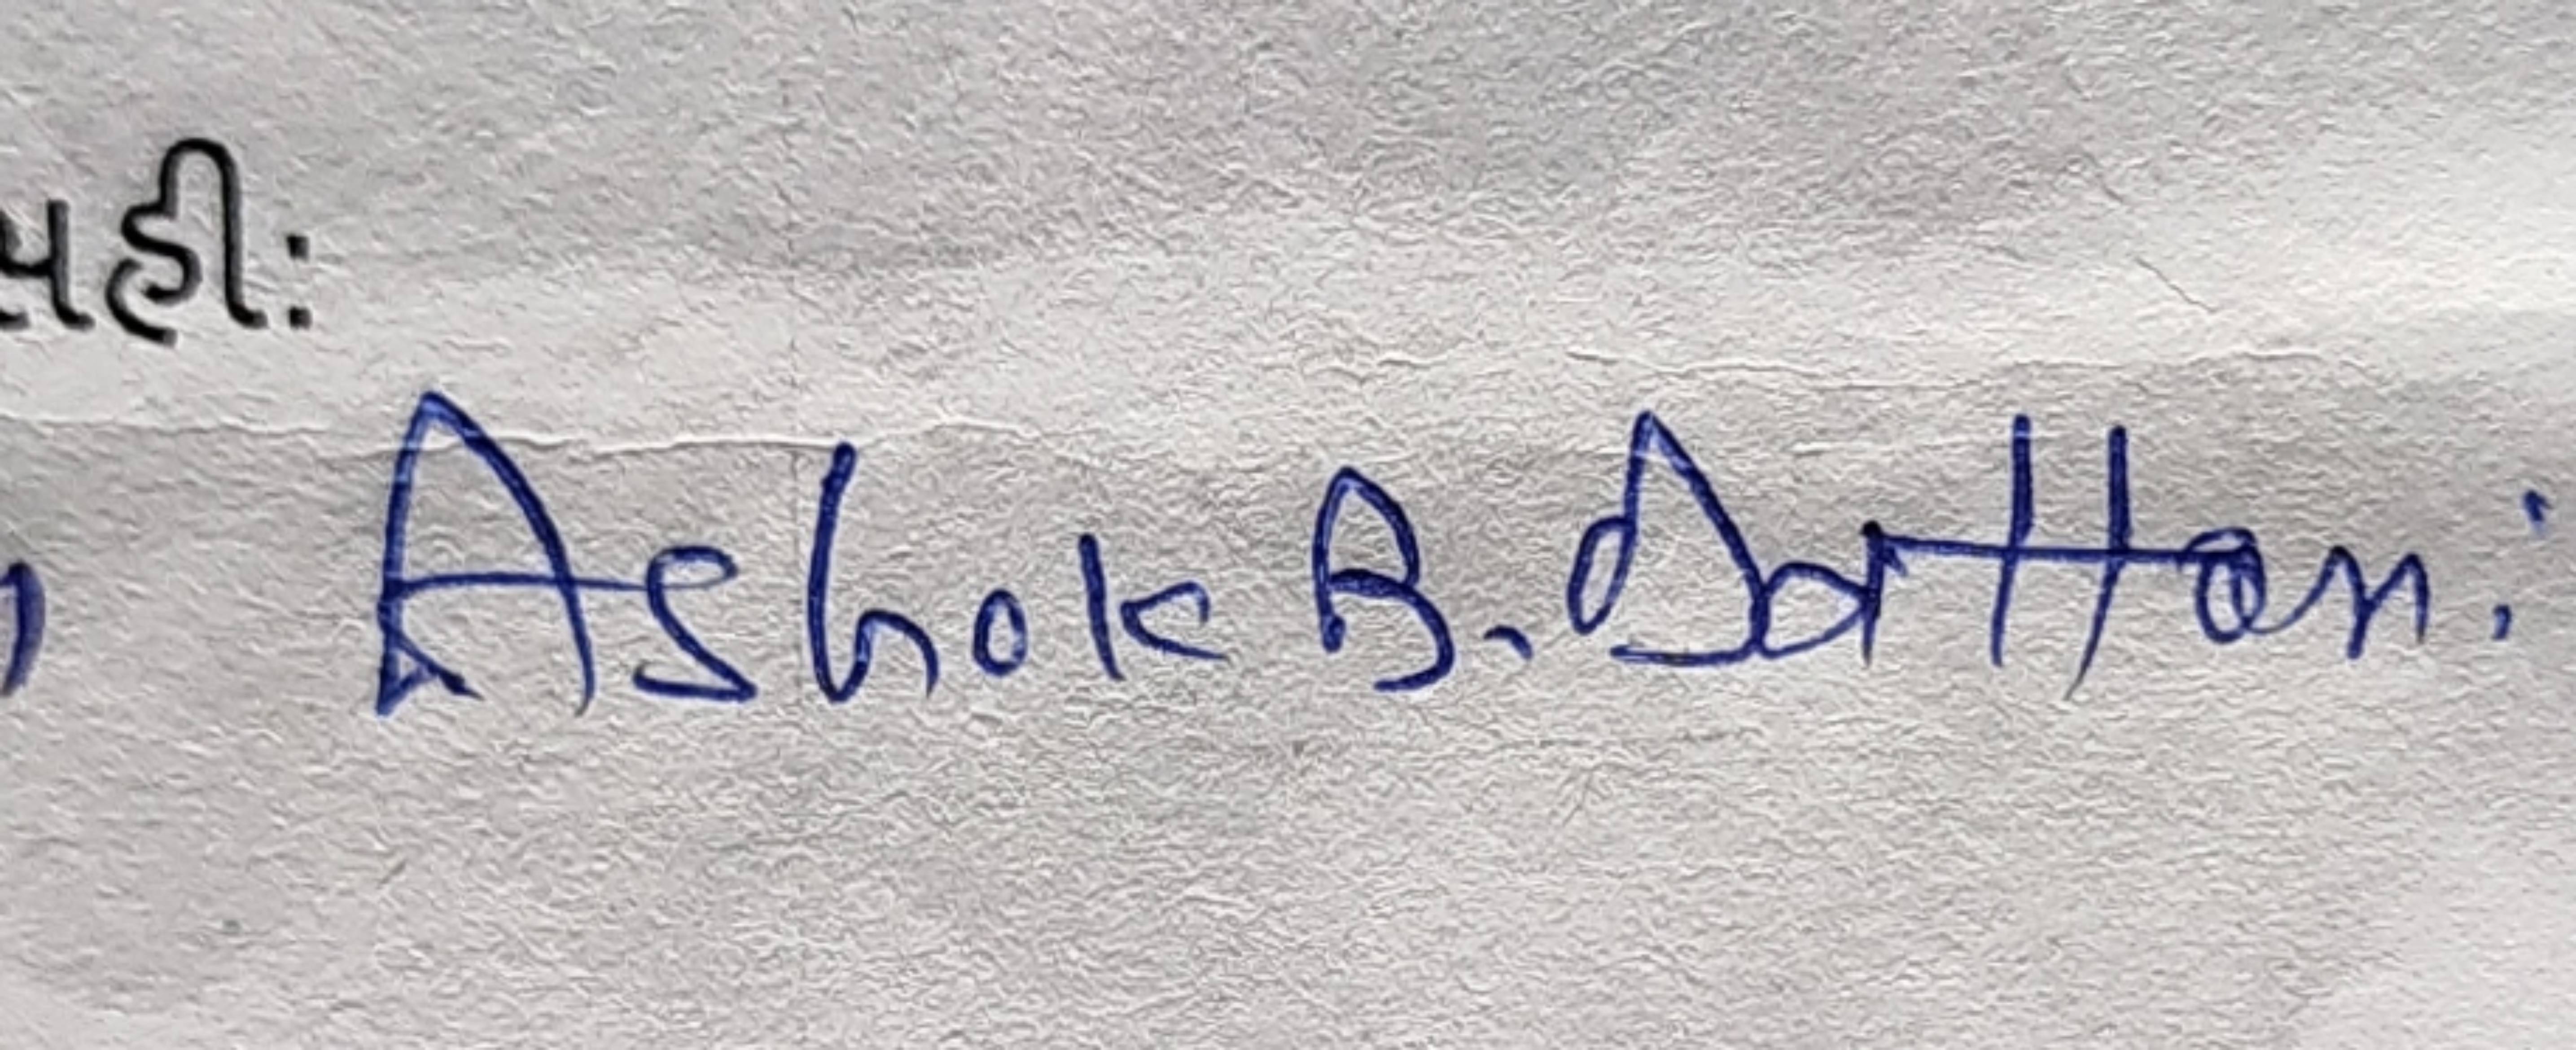 સહી:
Ashok B. Dattani